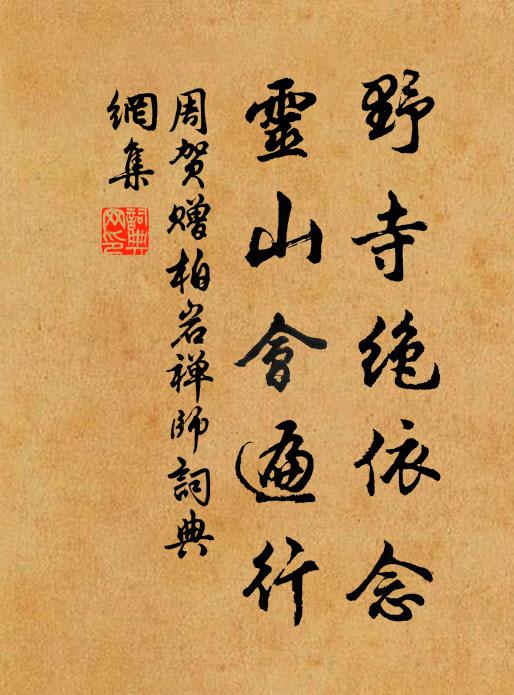 野寺絶依念
靈山會遍行
周賀赠柏岩禅師詞典
網集
詞典
网印